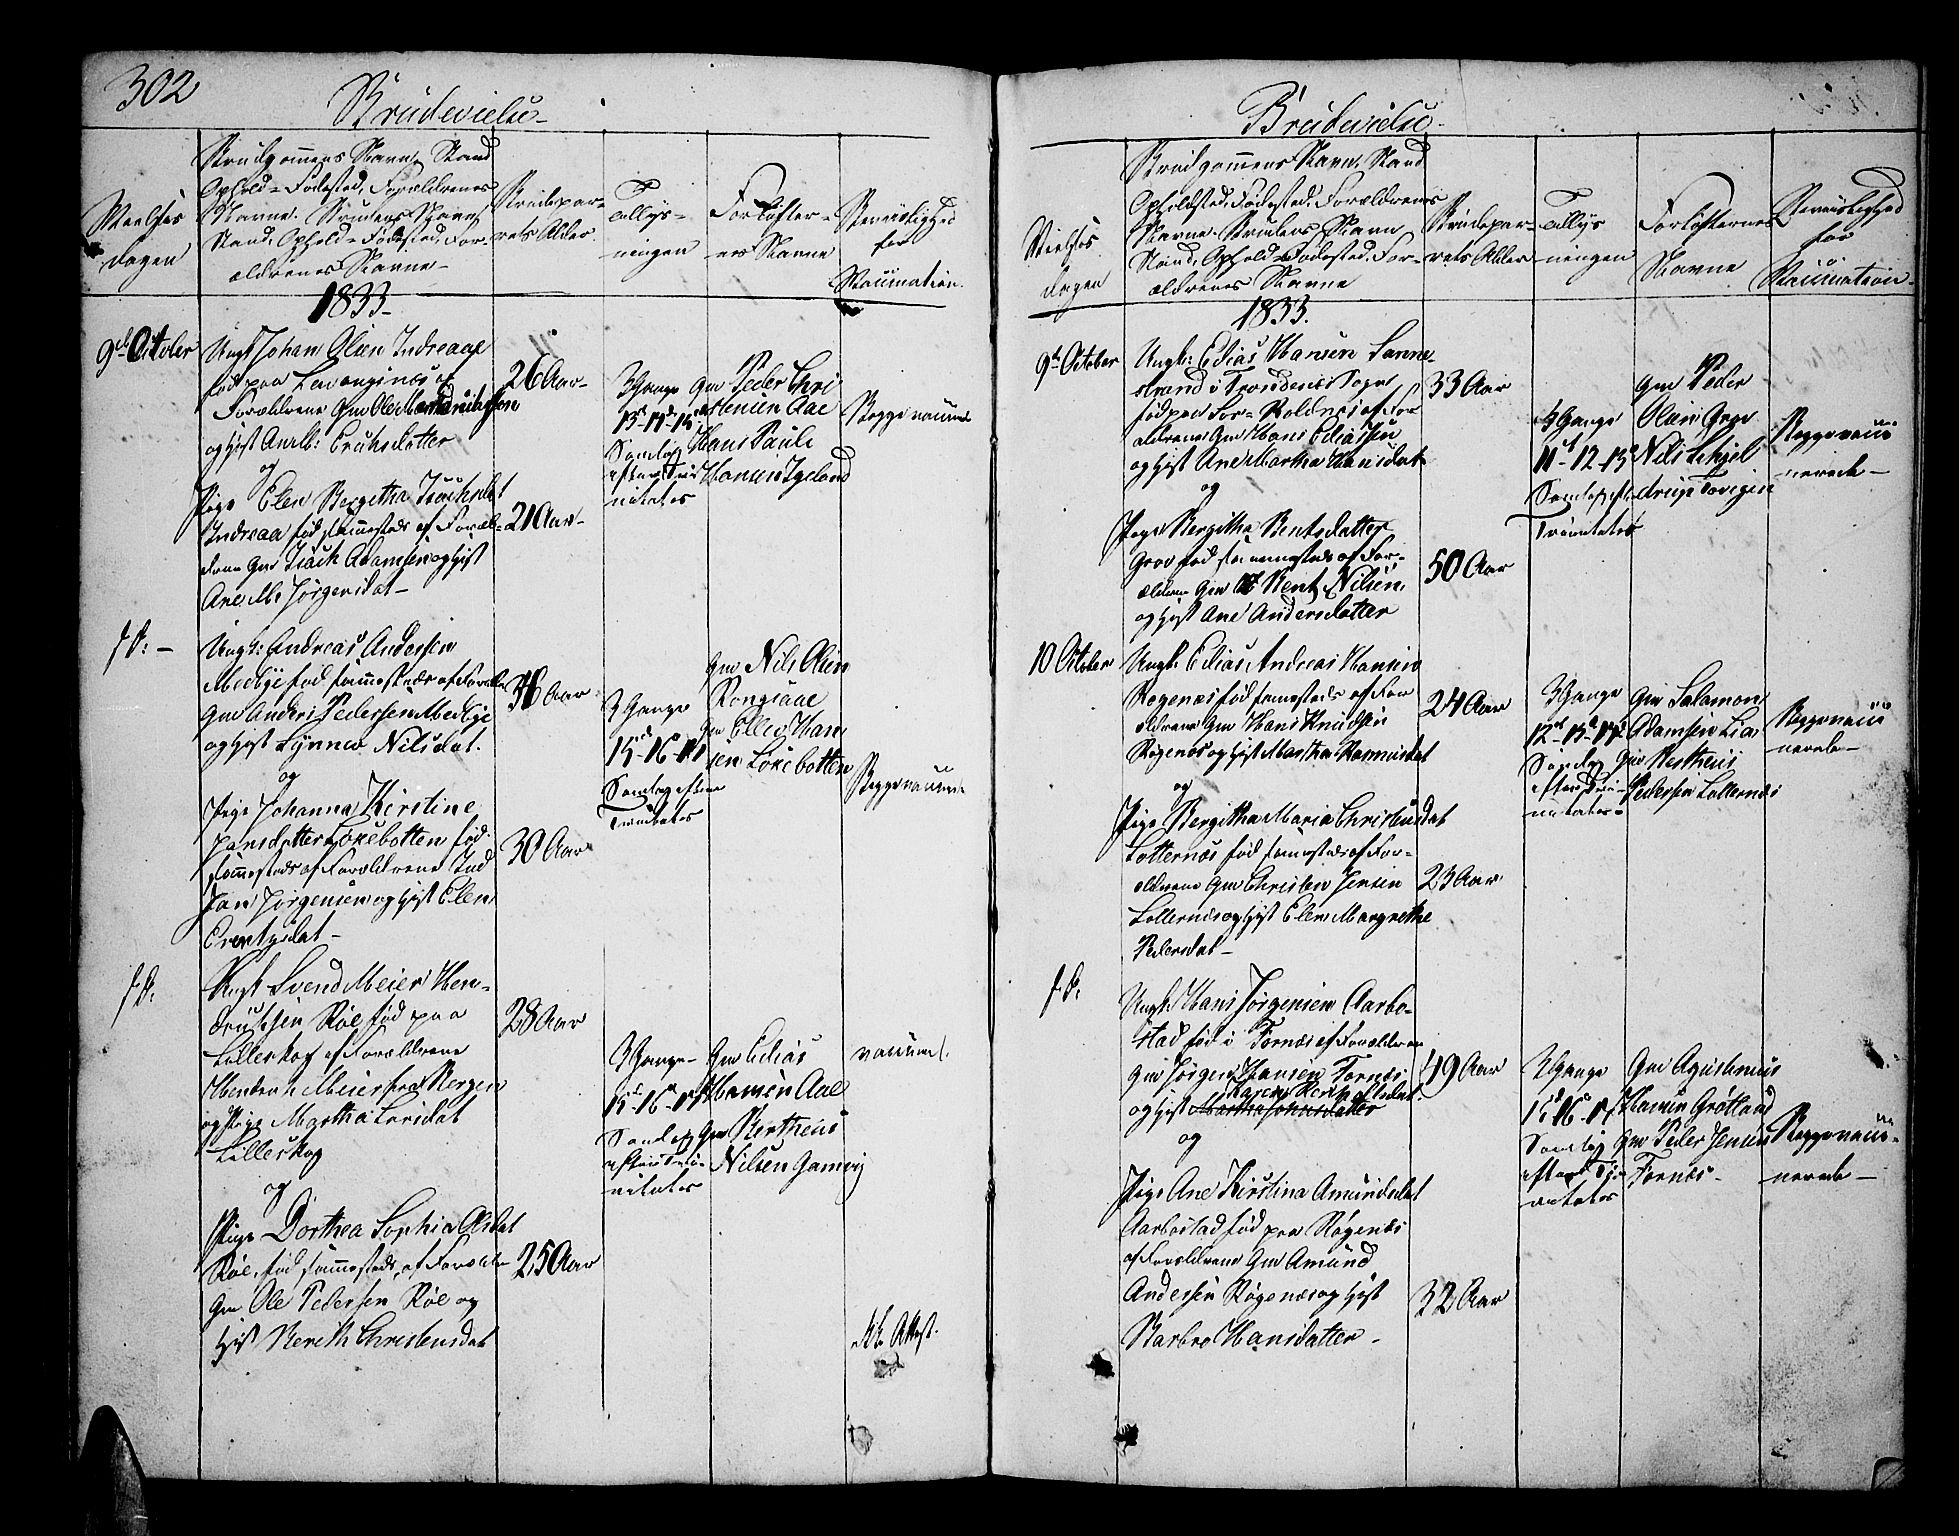 302
Brudevielse
Vielses
Dagen
Brudgommens Navn, Stand
Ophold- Fødested, Forældrenes
Navne. Brudens Navn
Stand, Ophold- Fødested, For-
ældrenes Navne
Brudepar-
rets Alder
Tillys-
ningen
Forlofter-
nes Navne
Beviislighed
for
Vaccination.
1833
9de October
Ungk Johan Olsen Indreaae
født paa Levangsnæs af
Forældrene Gm Ole
og Hust
og
Pige Elen Bergitha Isachsdat
Indreaa fød sammesteds af Foræl-
drene Gm Isach Adamsen og Hust
Ane M. Jørgensdat
26 Aar
21 Aar
3 Gange
13-14-15
Søndag
efter Tri
nitates
Gm Peder Chri
stensen Aae
Hans Pauli
Hansen
Begge vaccine
f. D:
Ungk: Andreas Andersen
Medbye fød sammesteds af Foræl
Gm Anders Pedersen Medbye
og Hust Lynnea Nilsdat.
og
Pige Johanna Kirstine
Jansdatter Løxebotten fød
sammesteds af Forældrene Ind
Jan Jørgensen og Hust Elen
Erentzdat
36 Aar
30 Aar
3 Gange
15-16-17
Søndag efter
Trinitates
Gm Nils Olsen
Gm Ellev Han
sen Løxebotten
Begge vaccine
f. D.
Ungk Svend Meier Hen-
drichsen Røe fød paa
Lilleskog af Forældrene
Hendrich Meier fra Bergen
og Pige Martha Larsdat
Lilleskog
og
Pige Dorthea Sophia Olsdat
Røe, fød sammesteds, af Foræld
Gm Ole Pedersen Røe og
Hust Berith Christensdat
28 Aar
25 Aar
3 Gange
15-16-17
Søndag
efter Tri-
nitates
Gm Elias
Hansen Aae
Gm Bertheus
Nilsen Gamvig
vaccine
Attest.
Brudevielse
Vielses
Dagen
Brudgommens Navn, Stand
Opholdsted, Fødested, Forældrenes
Navne. Brudens Navn
Stand, Ophold- Fødested, For-
ældrenes Navne
Brudepar-
rets Alder
Tillys
ningen
Forlofternes
Navne
Beviislighed
for
Vaccination
1833.
9de October
Ungk: Elias Hansen Sanne-
strand i Trondenæs Sogn
fød paa Roldnæs af For
ældrene Gm Hans Eliassen
og Hust Ane Martha Hansdat
og
Pige Bergitha Bentsdatter
Grov fød sammesteds af For-
ældrene Gm Bent Nilsen
og Hust Ane Andersdatter
33 Aar
50 Aar
3 Gange
11-12-13
Søndag eft
Trinitates
Gm Peder
Olsen Grov
Nils
Begge vacci
nerede
10 October
Ungk. Elias Andreas Hansen
Røgenæs fød sammesteds af For
ældrene Gm Hans Knudsen
Røgenæs og Hust Martha Rasmusdat
og
Pige Bergitha Maria Christensdat
Lotternæs fød sammesteds af For-
ældrene Gm Christen Jensen
Lotternæs og Hust Elen Margrethe
Pedersdat
24 Aar
23 Aar
3 Gange
12-13-14
Søndag
efter Tri-
nitates
Gm Salamon
Adamsen Lia
Gm Bertheus
Pedersen Lotternæs
Begge vacci
nerede
f. D.
Ungk: Hans Jørgensen Aarbo-
stad fød i Fornæs af Forældrene
Gm Jørgen Hansen Fornæs
Karen
og Hust Martha Johansdatter
og
Pige Ane Kirstina Amundsdat
Aarbostad fød paa Røgenæs
af Forældrene Gm Amund
Andersen Røgenæs og Hust
Barbro Hansdatter
49 Aar
32 Aar
3 Gange
15-16-17
Søndag
efter Tri
nitates
Gm Agustinus
Hansen Grøtland
Gm Peder Jensen
Fornæs
Begge vacci-
nerede